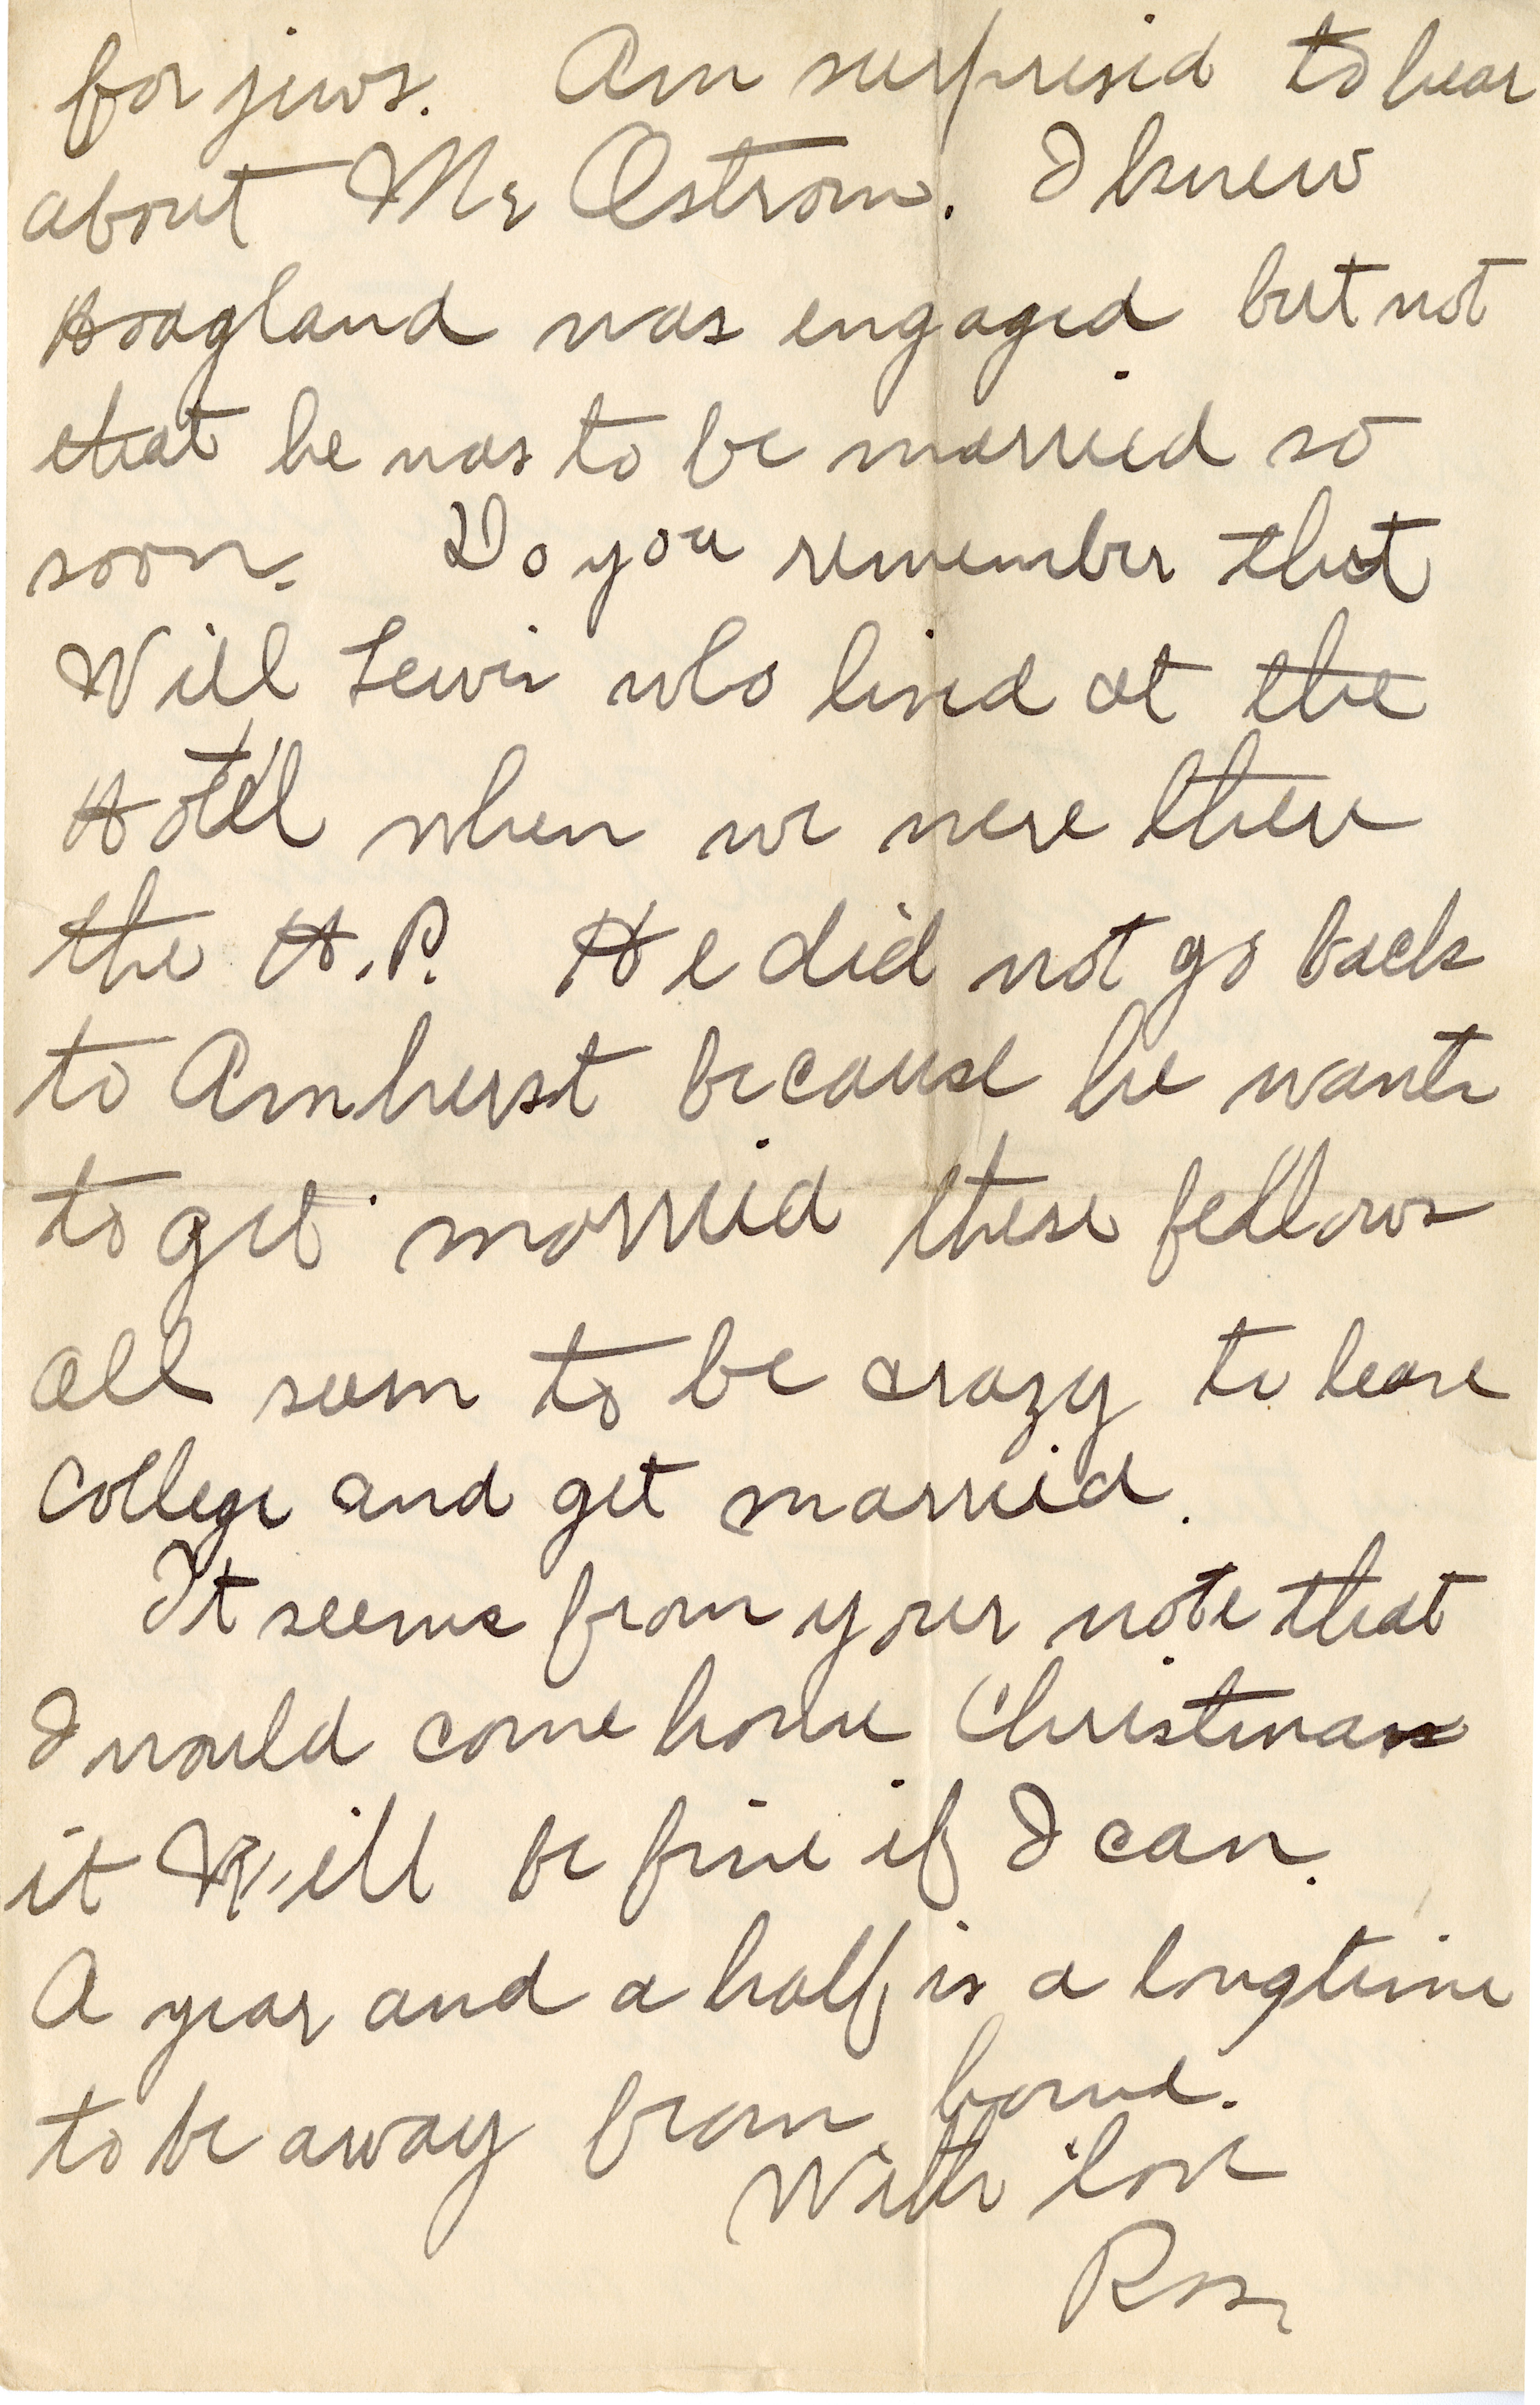 for jews. Am surprised to hear
about Mr Ostrom. I knew
Hoagland was engaged but not
that he was to be married so
soon. Do you remember that
Will Lewis who lived at the
Hotel when we were there
the H.P. He did not go back
to Amherst because he wants
to get married these fellows
all seem to be crazy to leave
College and get married.
It seems from your note that
I would come home Christmas
it Will be fine if I can.
A year and a half is a long time
to be away from home.
With love
Ross